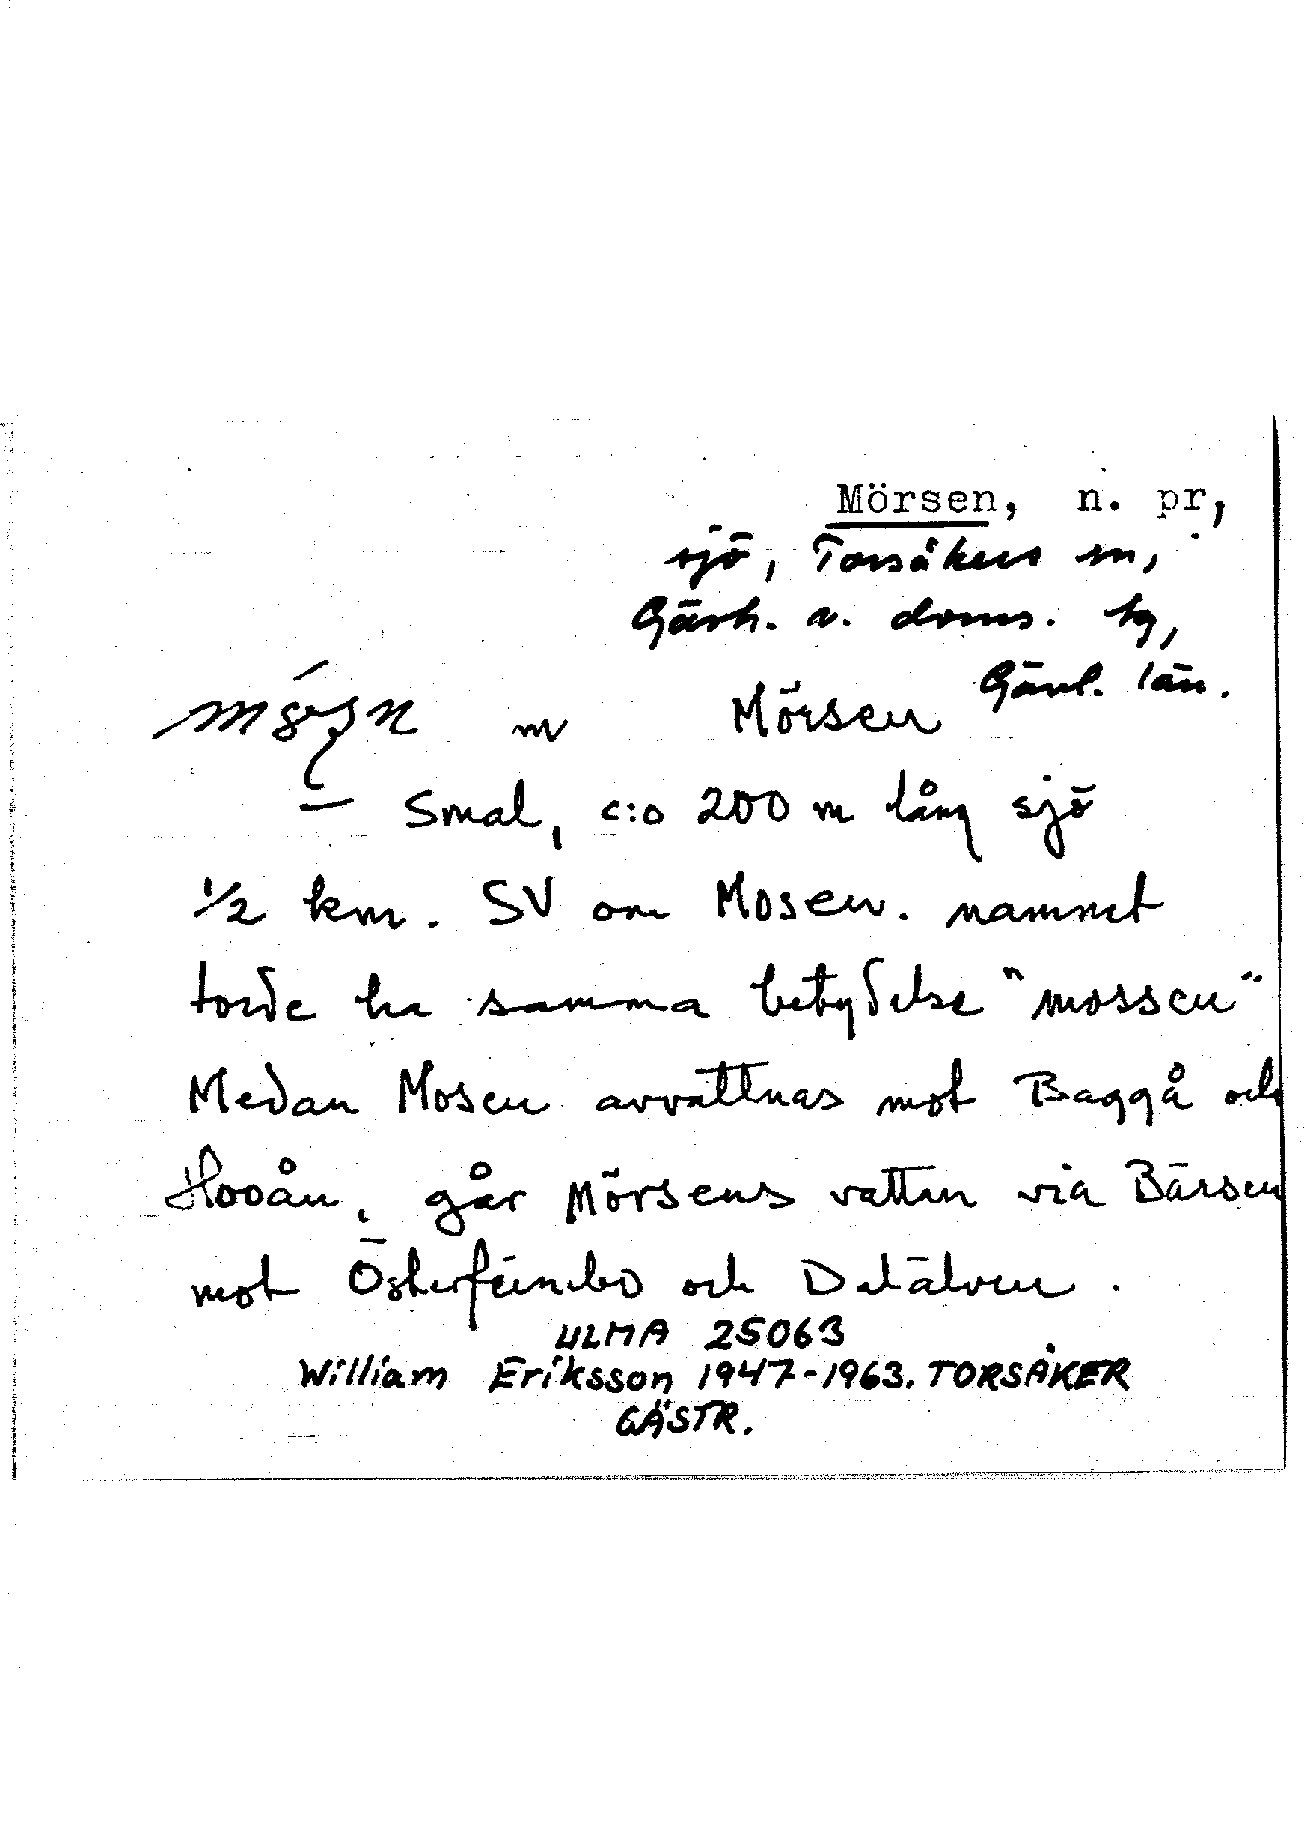 Mörsen, n. pr,
sjö, Torsåkers sn,
Gästr. v. doms. tg,
Gävl. län.
m Mörsen
— Smal, c:o 200 m lång sjö
1/2 km. SV om Mosen. namnet
torde ha samma betydelse "mossen"
Medan Mosen avvattnas mot Baggå och
Hooån, går Mörsens vatten via Bärsen
mot Österfärnebo och Dalälven.
ULMA 25063
William Eriksson 1947-1963. TORSÅKER
GÄSTR.